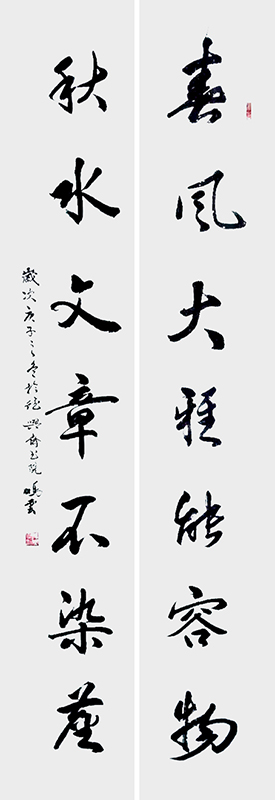 春風大雅能容物
秋水文章不染塵
歲次庚子之冬於德興齋書院鳴雲